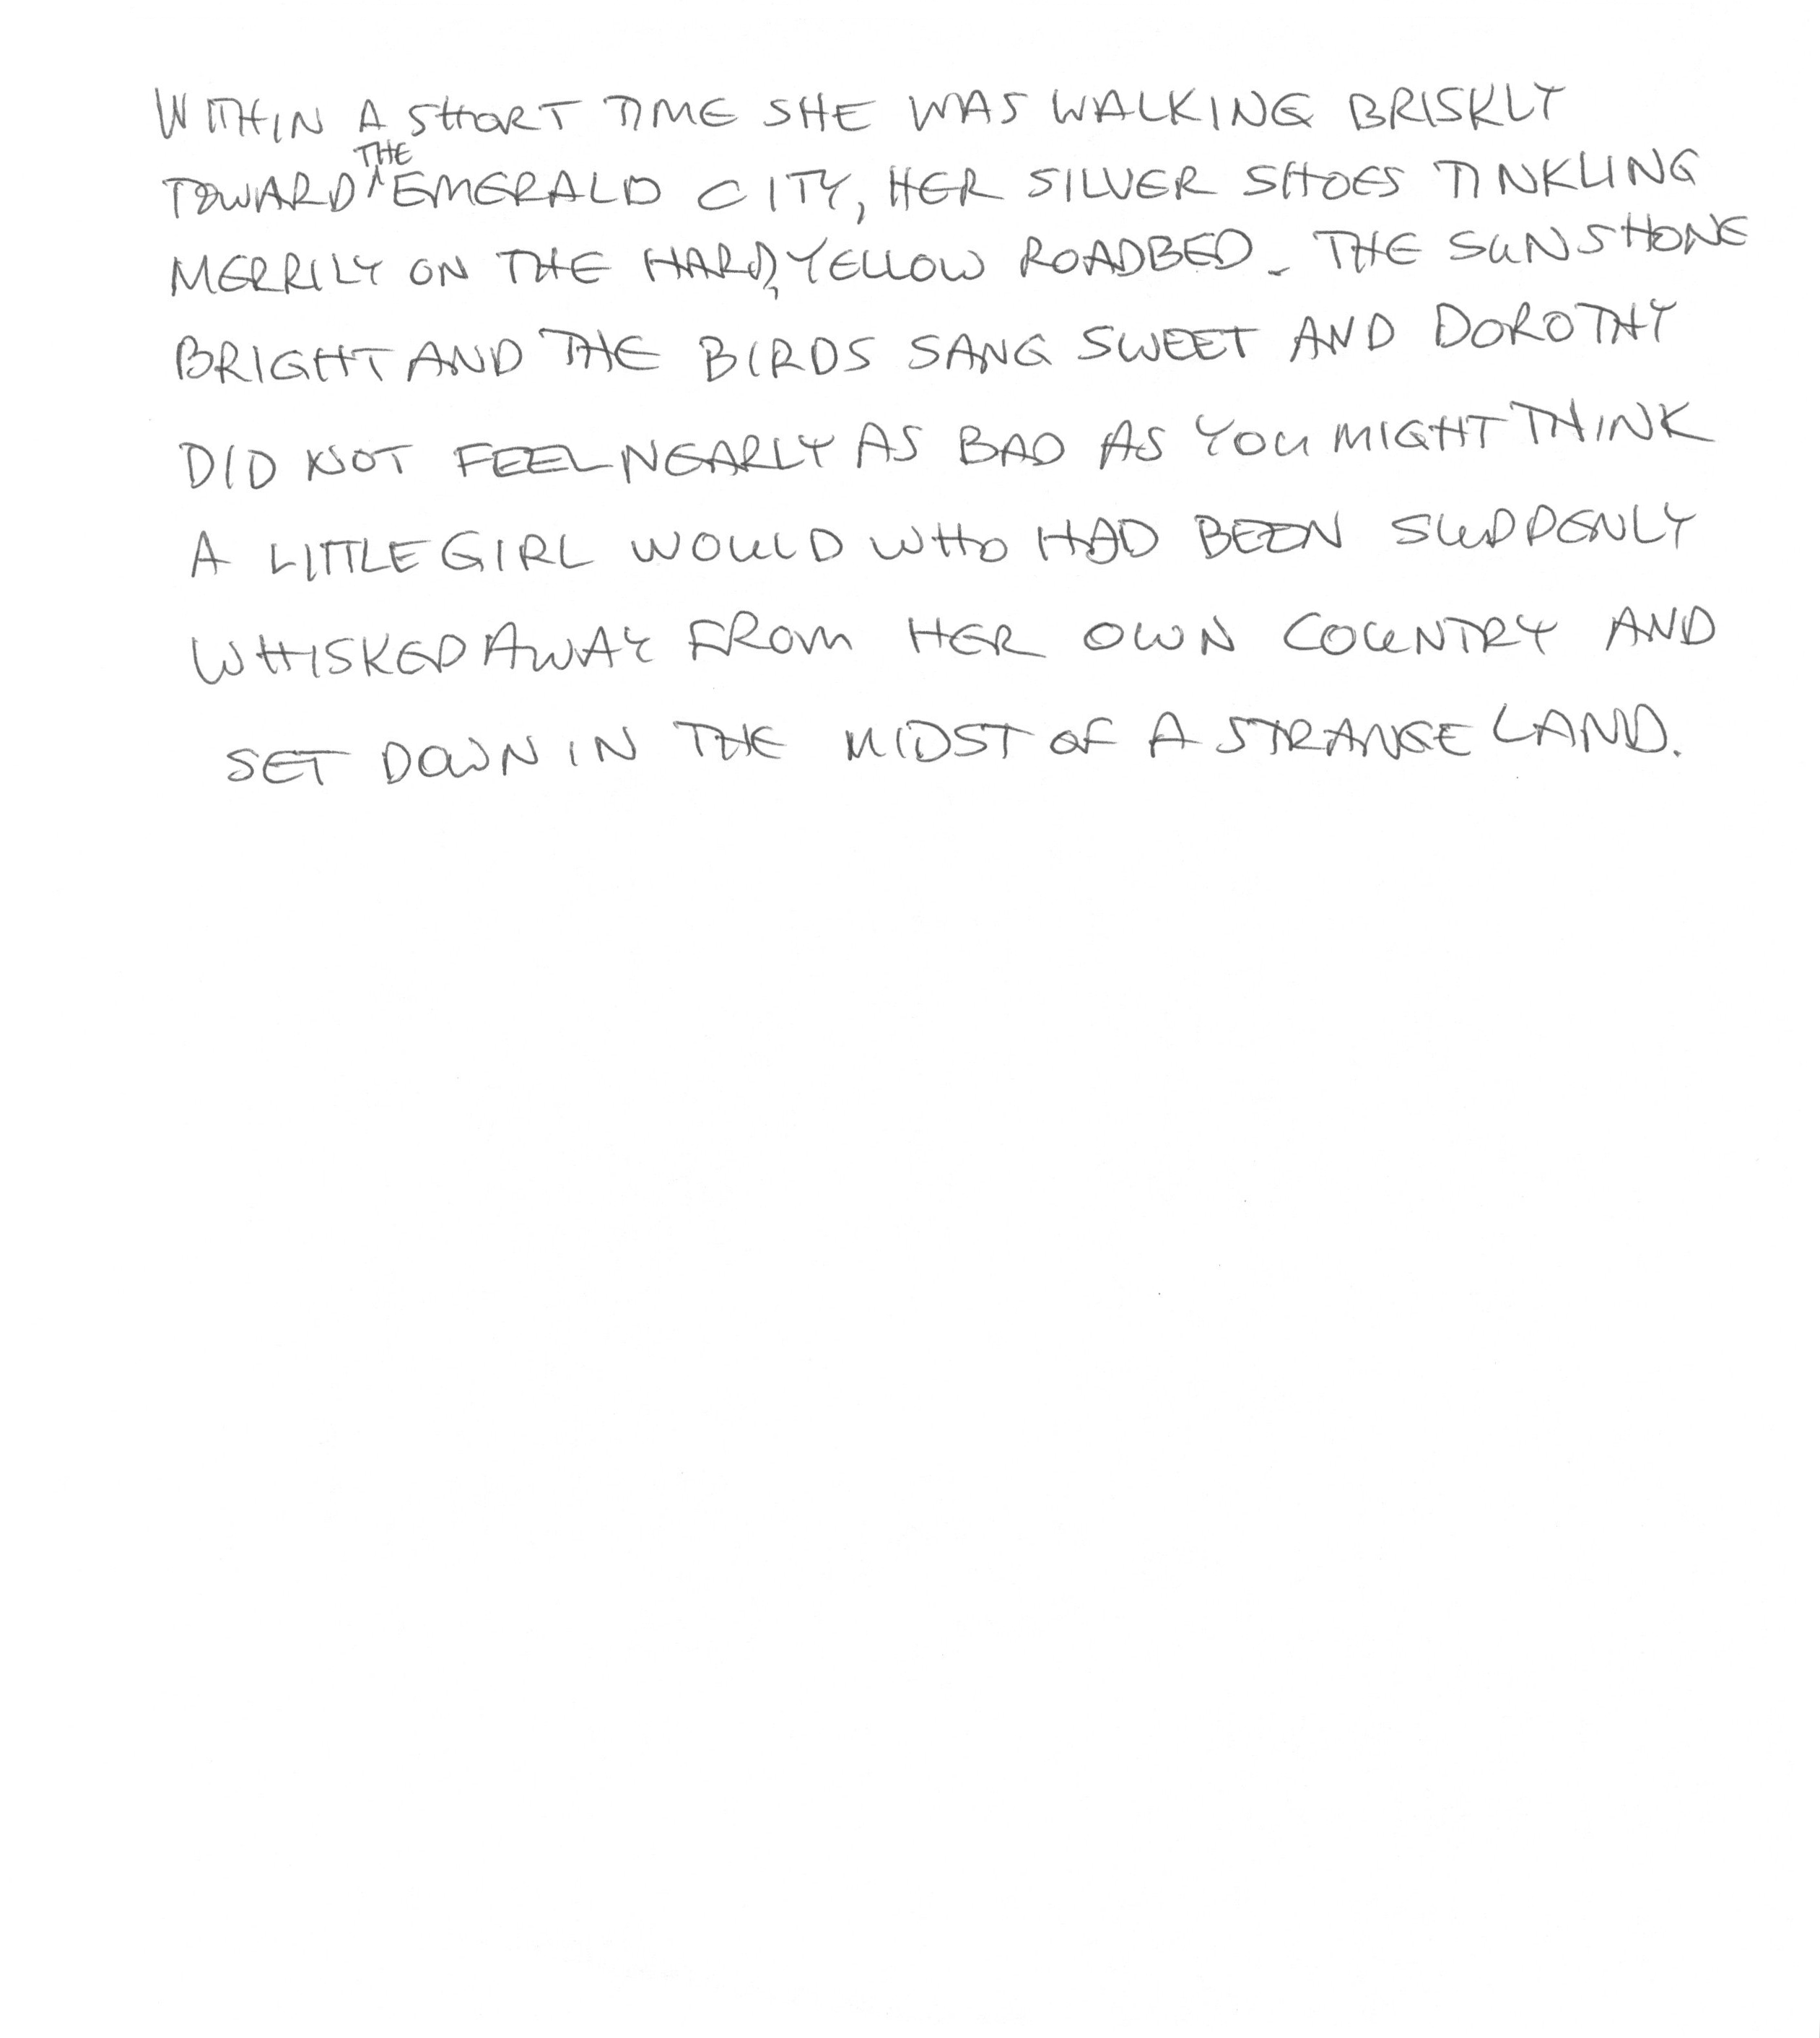 WITHIN A SHORT TIME SHE WAS WALKING BRISKLY
TOWARD THE EMERALD CITY, HER SILVER SHOES TINKLING
MERRILY ON THE HARD, YELLOW ROADBED. THE SUN SHONE
BRIGHT AND THE BIRDS SANG SWEET AND DOROTHY
DID NOT FEEL NEARLY AS BAD AS YOU MIGHT THINK
A LITTLE GIRL WOULD WHO HAD BEEN SUDDENLY
WHISKED AWAY FROM HER OWN COUNTRY AND
SET DOWN IN THE MIDST OF A STRANGE LAND.